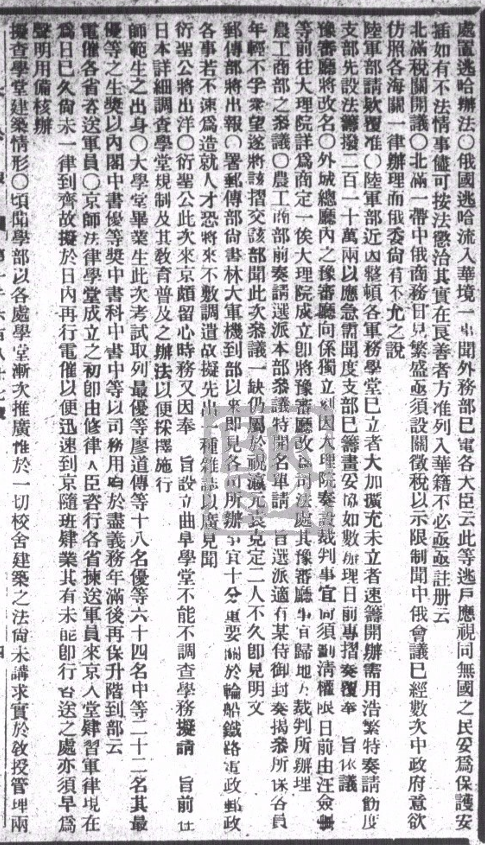 處置逃哈辦法○俄國逃哈流入華境一事聞外務部已電各大臣云此等逃戶應視同無國之民妥爲保護安
插如有不法情事儘可按法懲治其實在良善者方准列入華籍不必亟亟註册云
北滿稅關開議○北滿一帶中俄商務日見繁盛亟須設關徵稅以示限制聞中俄會議已經數次中政府意欲
仿照各海關一律辦理而俄委尙有不允之說
陸軍部請欵覆准○陸軍部近因整頓各軍務學堂已立者大加擴充未立者速籌開辦需用浩繁特奏請飭度
支部先設法籌撥二百一十萬兩以應急需聞度支部已籌畫妥協如數辦理日前專摺奏覆奉　旨依議
豫審廳將改名○外城總廳內之豫審廳向係獨立刻因大理院奏設裁判事宜尙須劃淸權限日前由汪僉
等前往大理院詳爲商定一俟大理院成立卽將豫審廳改爲司法處其豫審廳事宜歸地方裁判所辦理
農工商部之叅議○農工商部前奏請選派本部叅議特開名單請　旨選派適有某侍御封奏揭叅所保各員
年輕不孚衆望遂將該摺交該部聞此次叅議一缺仍屬於祝瀛元袁克定二人不久卽見明文
郵傳部將出報○署郵傳部尙書林大軍機到部以來卽見各司所辦事宜十分重要關於輪船鐵路電政郵政
各事若不速爲造就人才恐將來不敷調遣故擬先出一種雜誌以廣見聞
衍聖公將出洋○衍聖公此次來京頗留心時務又因奉　旨設立曲阜學堂不能不調查學務擬請　旨前往
日本詳細調查學堂規制及其敎育普及之辦法以便採擇施行
師範生之出身○大學堂畢業生此次考試取列最優等廖道傳等十八名優等六十四名中等二十二名其最
優等之生獎以內閣中書優等獎中書科中書中等以司務用均於盡義務年滿後再保升階到部云
電催各省咨送軍員○京師法律學堂成立之初卽由修律大臣咨行各省揀送軍員來京入堂肄習軍律現在
爲日已久尙未一律到齊故擬於日內再行電催以便迅速到京隨班肄業其有未能卽行咨送之處亦須早爲
聲明用備核辦
擬查學堂建築情形○頃聞學部以各處學堂漸次推廣惟於一切校舍建築之法尙未講求實於敎授管理兩